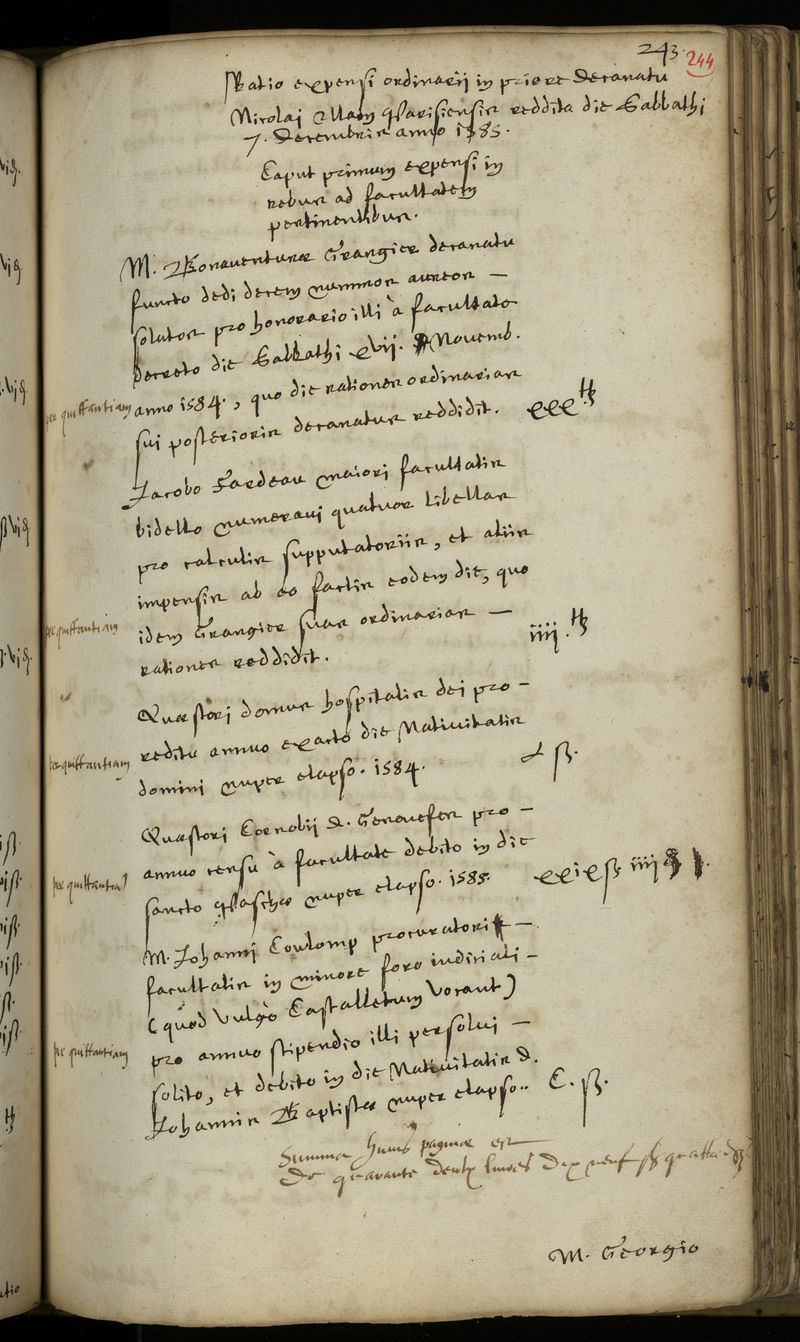 243.
244
Ratio expensi ordinarij in priore decanatu
Nicolai Marparisiensis reddita die Sabbathi
7. Decembris anno 1585.
Caput primum expensi in
rebus ad facultatem
pertinentibus.
M. Bonaventuræ Grangier decanatu
functo dedi decem nummos aureos –
solatos pro honorario illi à facultate
decreto die Sabbathi xvij. Novemb.
per quittantiam anno 1584., quo die rationes ordinarias
sui posterioris decanatus reddidit. xxx ₶
Jacobo Fardeau maiori facultatis
bidello numeravi quatuor libellas
pro calculis supputatoriis, et aliis
impensis ab eo factis eodem die, quo
per quittantiam idem Grangier suas ordinarias –
rationes reddidit. iiij. ₶
Quæstori domus hospitalis dei pro –
per quittantiam reditu annuo exacto die Nativitatis
domini nuper elapso. 1584. ß.
Quæstori Coenobij D. Genovefes pro –
per quittantiam annuo censu à facultate debito in die
sancto Paschæ nuper elapso. 1585. xxixß iiij
M. Johanni Coulomp procuratori –
facultatis in minore foro iudiciali –
(quod vulgò Castelletum vocant)
per quittantiam pro annuo stipendio illi persolui –
solito, et debito in die Nativitatis D.
Johannis Baptistæ nuper elapso. C. ß.
Summa huius paginæ est
de quarante deulx livres dix neuf ß quattre
M. Georgio